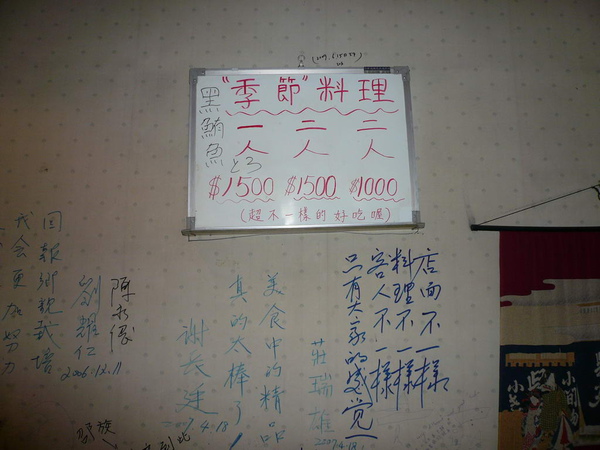 "季節"料理
黑鮪魚
とろ
一人 二人 二人
$1500 $1500 $1000
(超不一樣的好吃喔)
店面不一樣
料理不一樣
客人不一樣
只有大家的感觉一
莊瑞雄
2007.4.18
美食中的精品
真的太棒了!
謝長廷
2007.4.18
劉耀仁
2006.12.11
回報鄉親栽培
我会更加努力